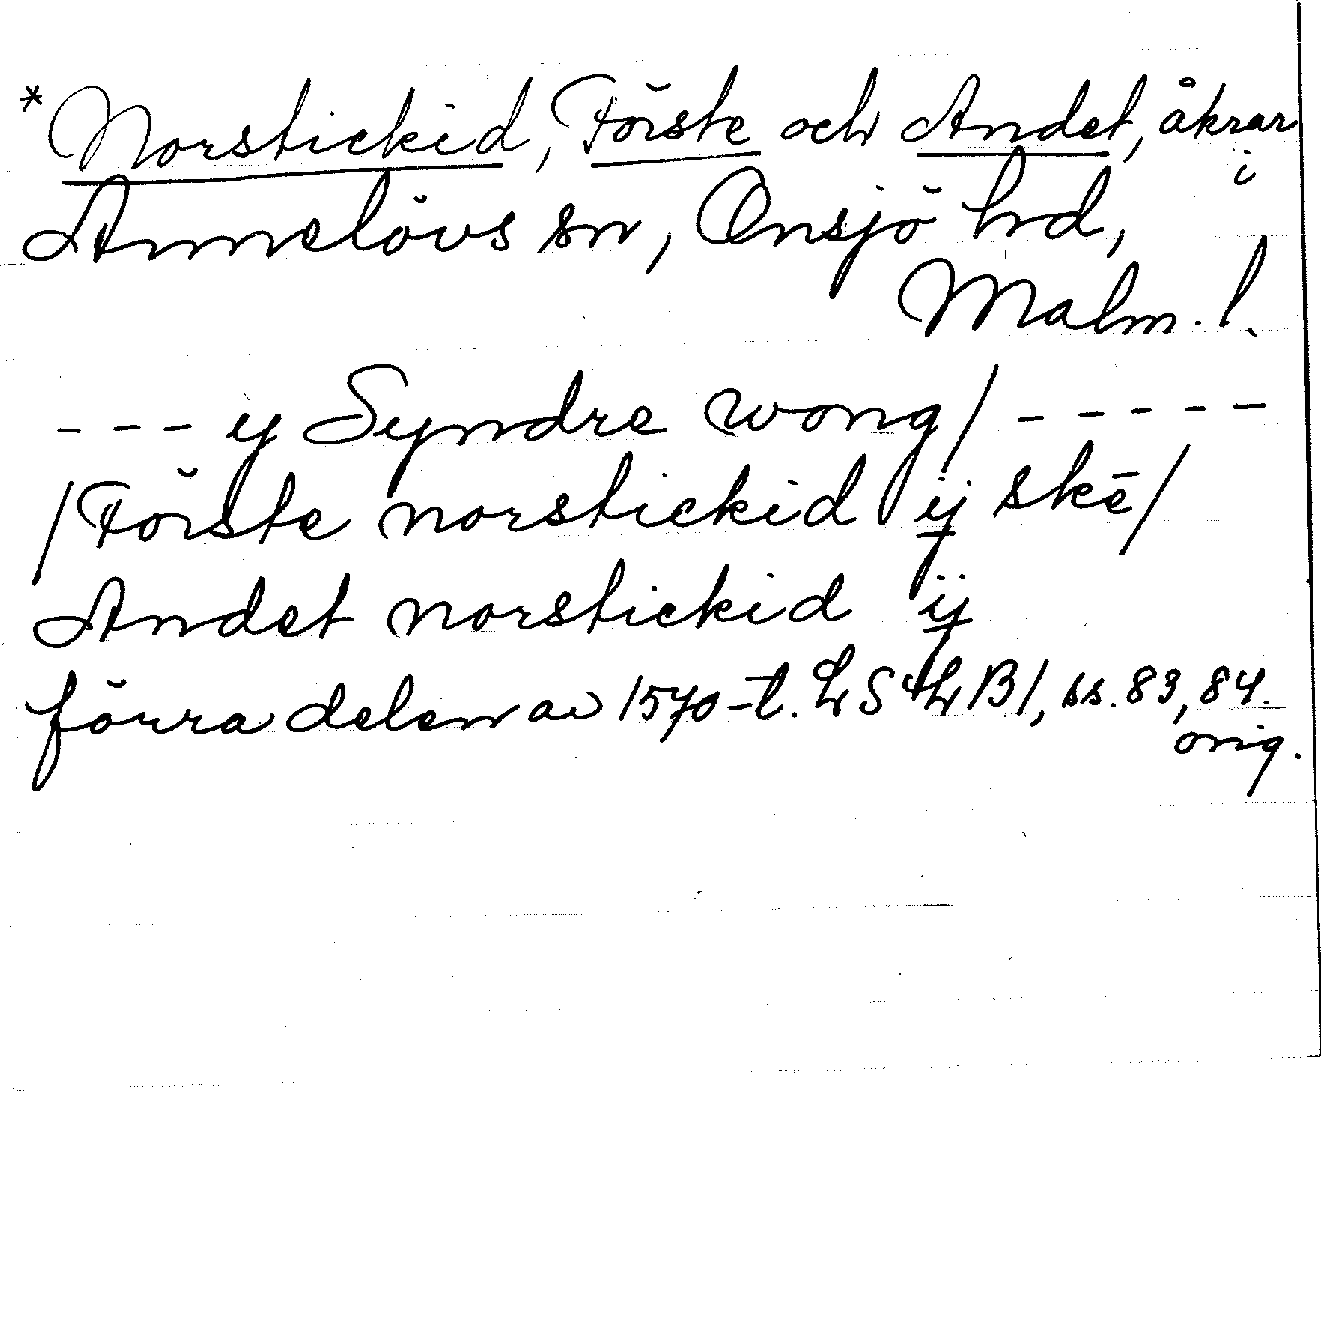 *Norstickid, Förste och Andet, åkrar i
Annelövs sn, Onsjö hd,
Malm. l.
--- y Syndre wong/ -----
/Förste norstickid ij skē/
Andet norstickid ij
förra delen av 1570-t. LSLB1, ss. 83, 84.
orig.